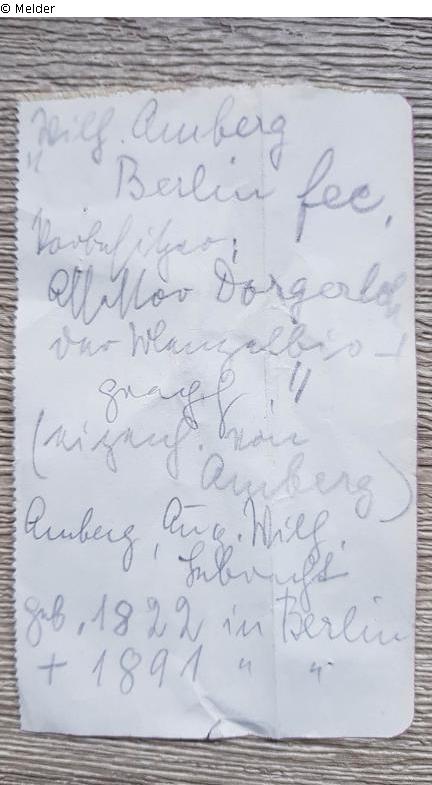 © Melder
„Wilh. Amberg
Berlin fec.
Vorbesitzer:
Dorgerloh
der Menzelbio-
graph."
(eigenh. von
Amberg)
Amberg, Aug. Wilh.
geb. 1822 in Berlin
+ 1891 " "